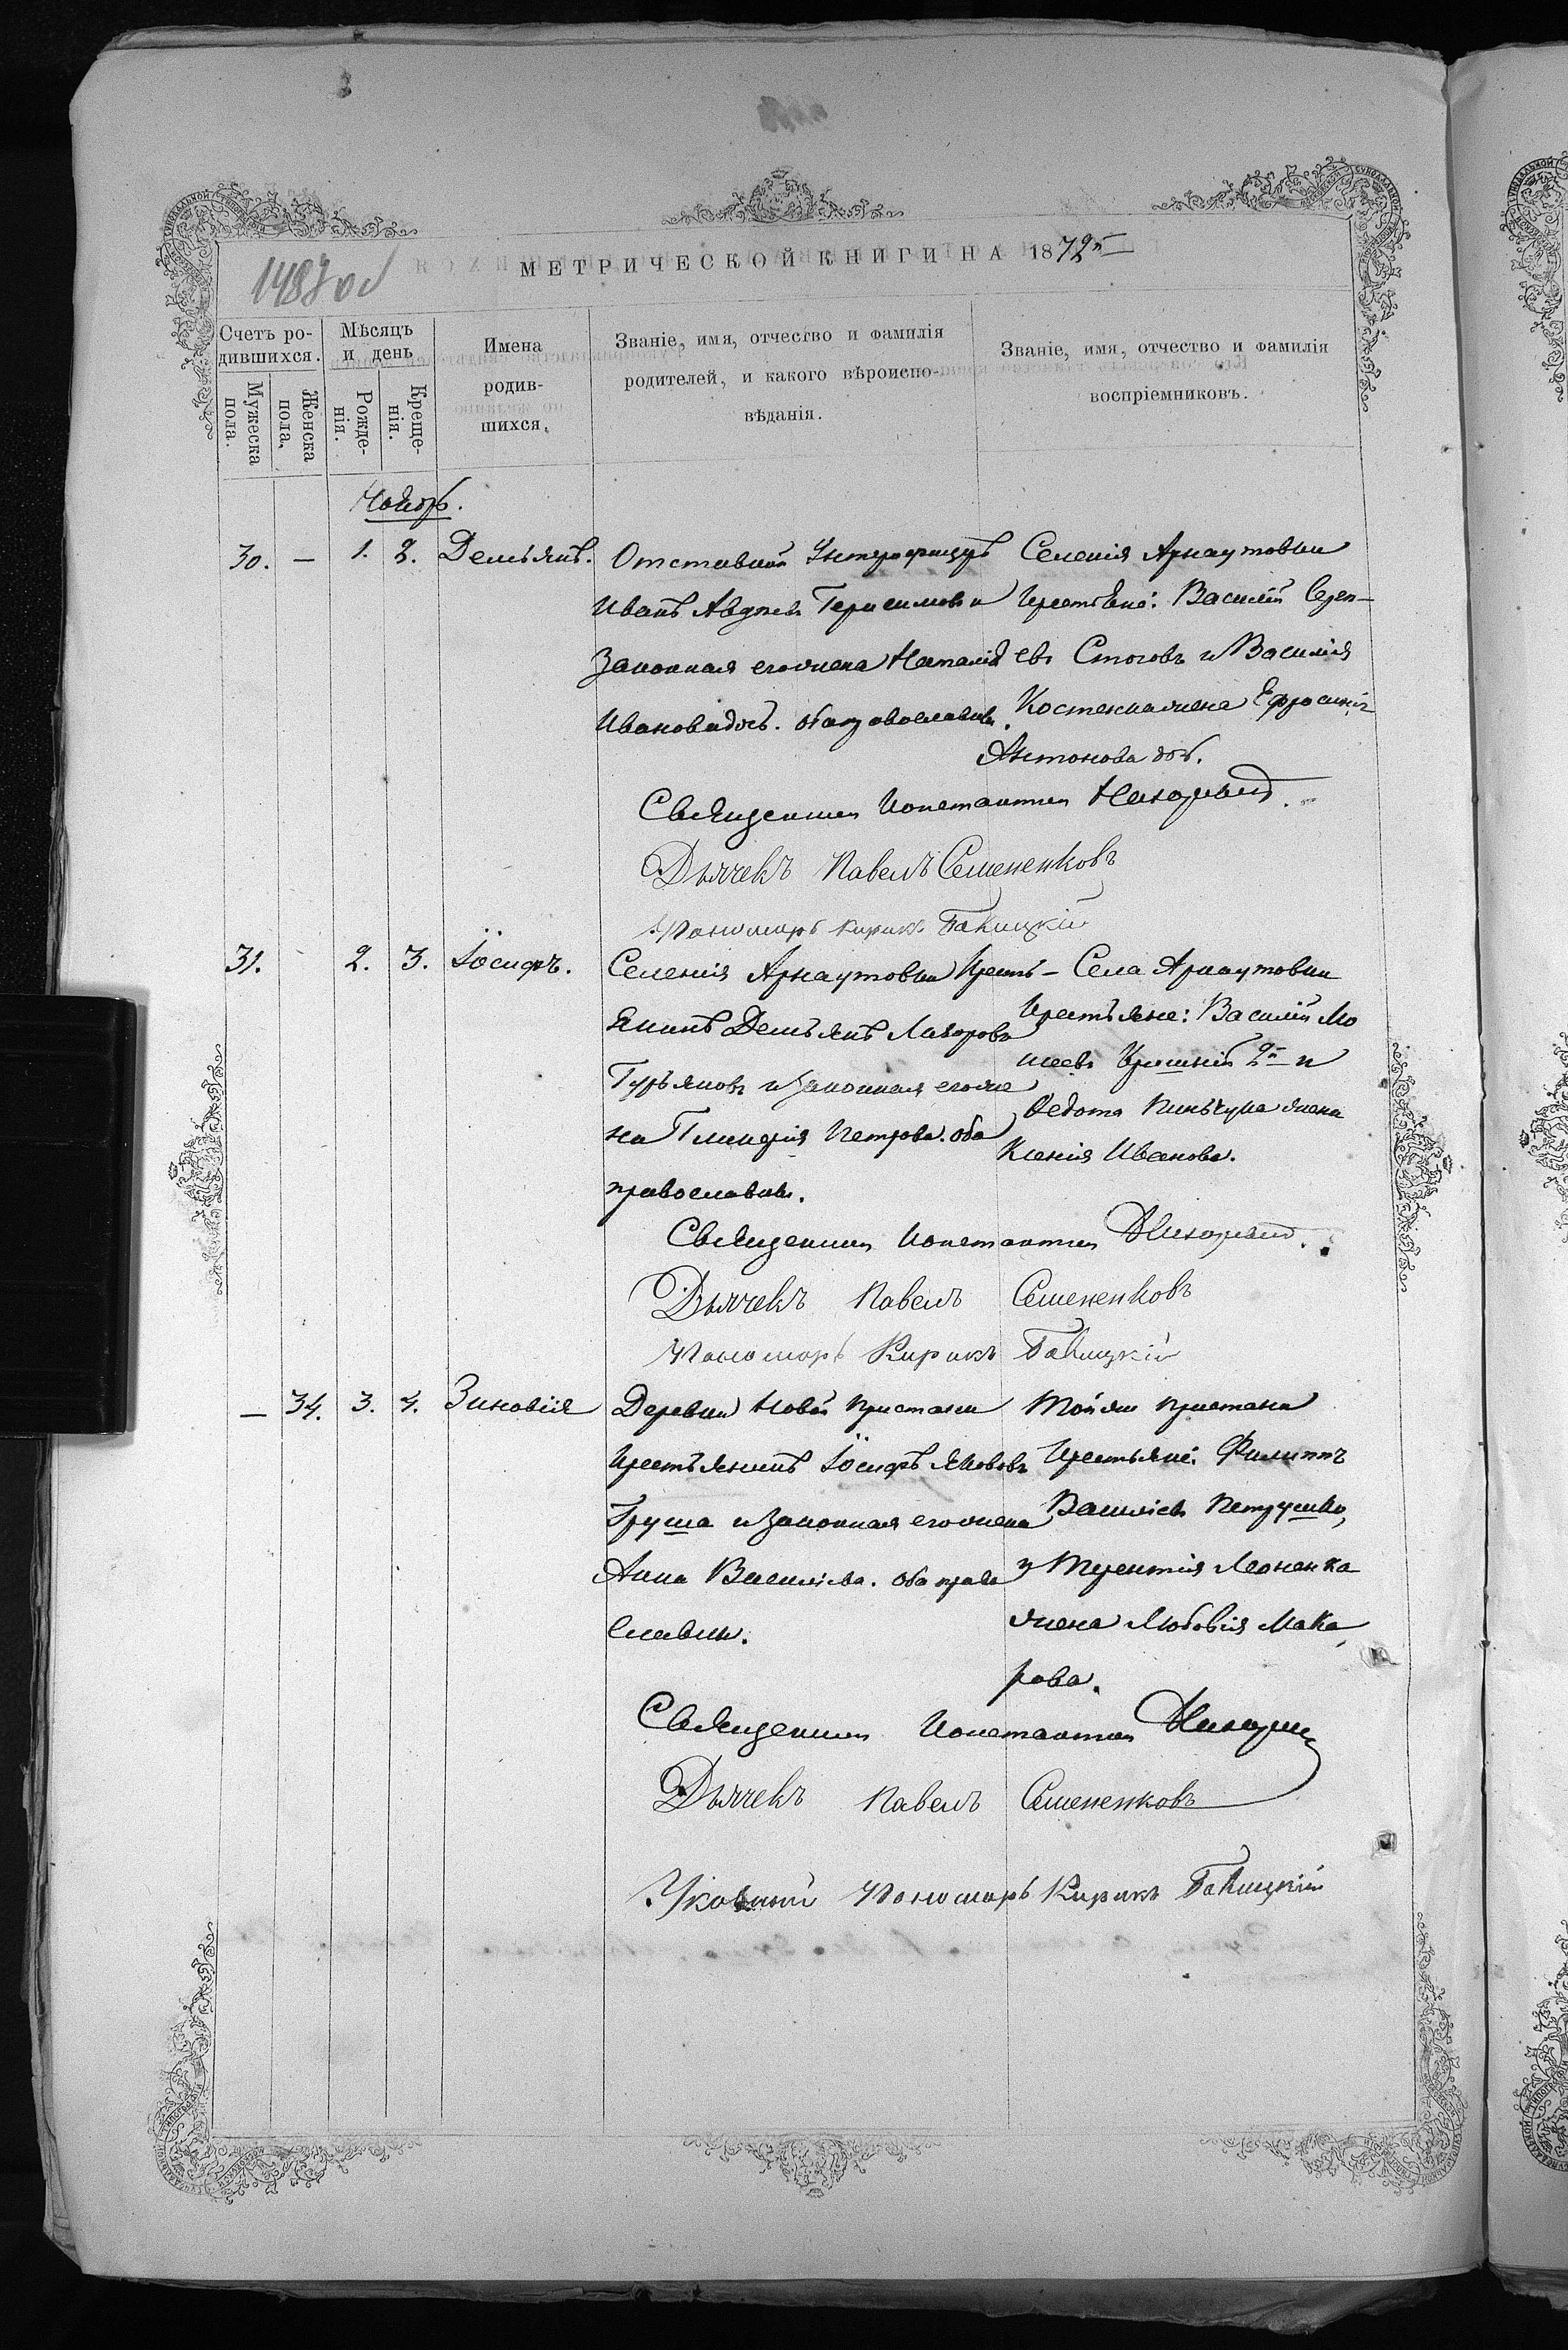 МЕТРИЧЕСКОЙ КНИГИ НА 1872й
Счетъ родившихся.
Мужеска пола.
Женска пола.
Мѣсяцъ и день
Рожденія.
Крещенія.
Имена родившихся.
Званіе, имя, отчество и фамилія родителей, и какого вѣроисповѣданія.
Званіе, имя, отчество и фамилія воспріемниковъ.
30. — 1. 2. Демьянъ.
Отставной Унтерофицеръ
Иванъ Авдѣевъ Герасимовъ и
Законная его жена Наталія
Иванова дочь. оба православны.
Селенія Арнаутовки
Крестьяне: Василій Сер
евъ Стоговъ и Василія
Костенка жена Ефросинія
Антонова доч.
Священникъ Константинъ
Дьячекъ Павелъ Семененковъ
Пономарь Кирикъ
31. 2. 3. Іосифъ.
Селенія Арнаутовки Кресть-
янинъ Демьянъ Лазаревъ
Гурьяновъ и Законная его же
на Гликерія Петрова. оба
православны.
Села Арнаутовки
Крестьяне: Василій Мо
исеевъ 2й и
Федота жена
Ксенія Иванова.
Священникъ Константинъ
Дьячекъ Павелъ Семененковъ
Пономарь Кирикъ
— 34. 3. 4. Зиновія
Деревни Новой Пристани
Крестьянинъ Іосифъ Яковлевъ
Груша и Законная его жена
Анна Васильева. Оба право
славны.
Той же Пристани
Крестьяне: Филиппъ
Васильевъ Петрушко,
и Терентія Леоненка
жена Любовія Мака
рова.
Священникъ Константинъ
Дьячекъ Павелъ Семененковъ
Пономарь Кирикъ